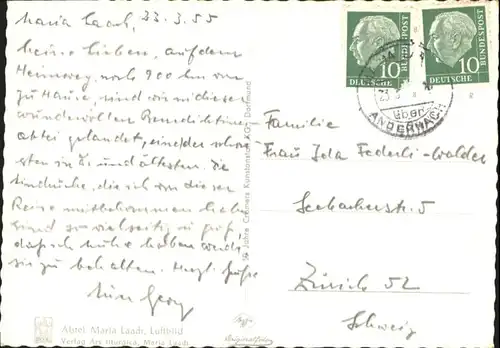 Maria Laach, 23.3.55
Meine Lieben, auf dem
Heimweg, noch 900 km von
zu Hause, sind wir in dieser
wundervollen Benediktiner-
abtei gelandet, eine der schön-
sten in D und ältesten. Die
Eindrücke, die ich von dieser
Reise mitbekommen habe
sind so vielseitig u. groß,
daß ich Mühe haben werde
sie zu behalten. Herzl. Grüße
Georg
Abtei Maria Laach, Luftbild
Verlag Ars liturgica, Maria Laach
50 Jahre Cramers Kunstanstalt KG · Dortmund
10
DEUTSCHE
BUNDESPOST
10
DEUTSCHE
BUNDESPOST
über
ANDERNACH
Familie
Frau Ida Federli-Walder
Seebacherstr. 5
Zürich 52
Schweiz